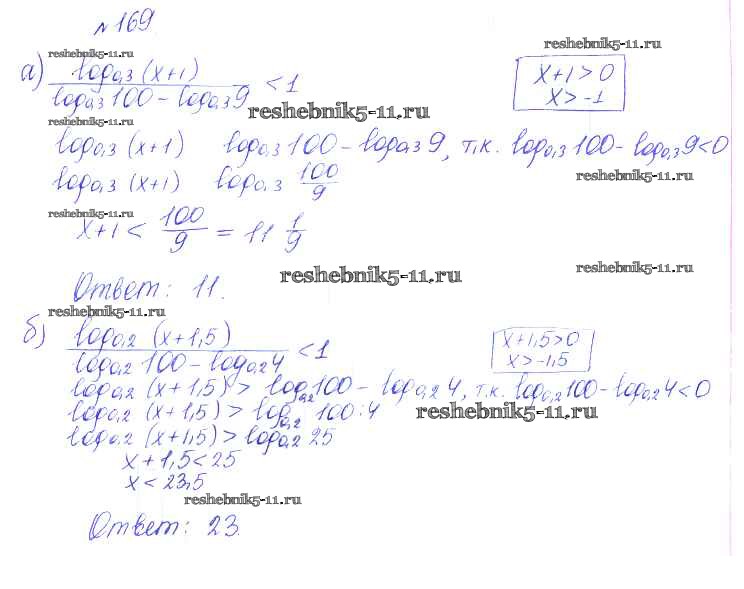 №169.
reshebnik5-11.ru
reshebnik5-11.ru
а) log₀,₃ (x+1) / log₀,₃ 100 − log₀,₃ 9 < 1
x+1>0
x>-1
reshebnik5-11.ru
reshebnik5-11.ru
log₀,₃ (x+1) log₀,₃ 100 − log₀,₃ 9, т.к. log₀,₃ 100 − log₀,₃ 9<0
reshebnik5-11.ru
log₀,₃ (x+1) log₀,₃ 100/9
reshebnik5-11.ru
x+1 < 100/9 = 11 1/9
reshebnik5-11.ru
reshebnik5-11.ru
Ответ: 11.
reshebnik5-11.ru
б) log₀,₂ (x+1,5) / log₀,₂ 100 − log₀,₂ 4 < 1
x+1,5>0
x>-1,5
log₀,₂ (x+1,5) > log₀,₂ 100 − log₀,₂ 4, т.к. log₀,₂ 100 − log₀,₂ 4<0
log₀,₂ (x+1,5) > log₀,₂ 100:4
reshebnik5-11.ru
log₀,₂ (x+1,5) > log₀,₂ 25
x+1,5<25
x<23,5
reshebnik5-11.ru
Ответ: 23.